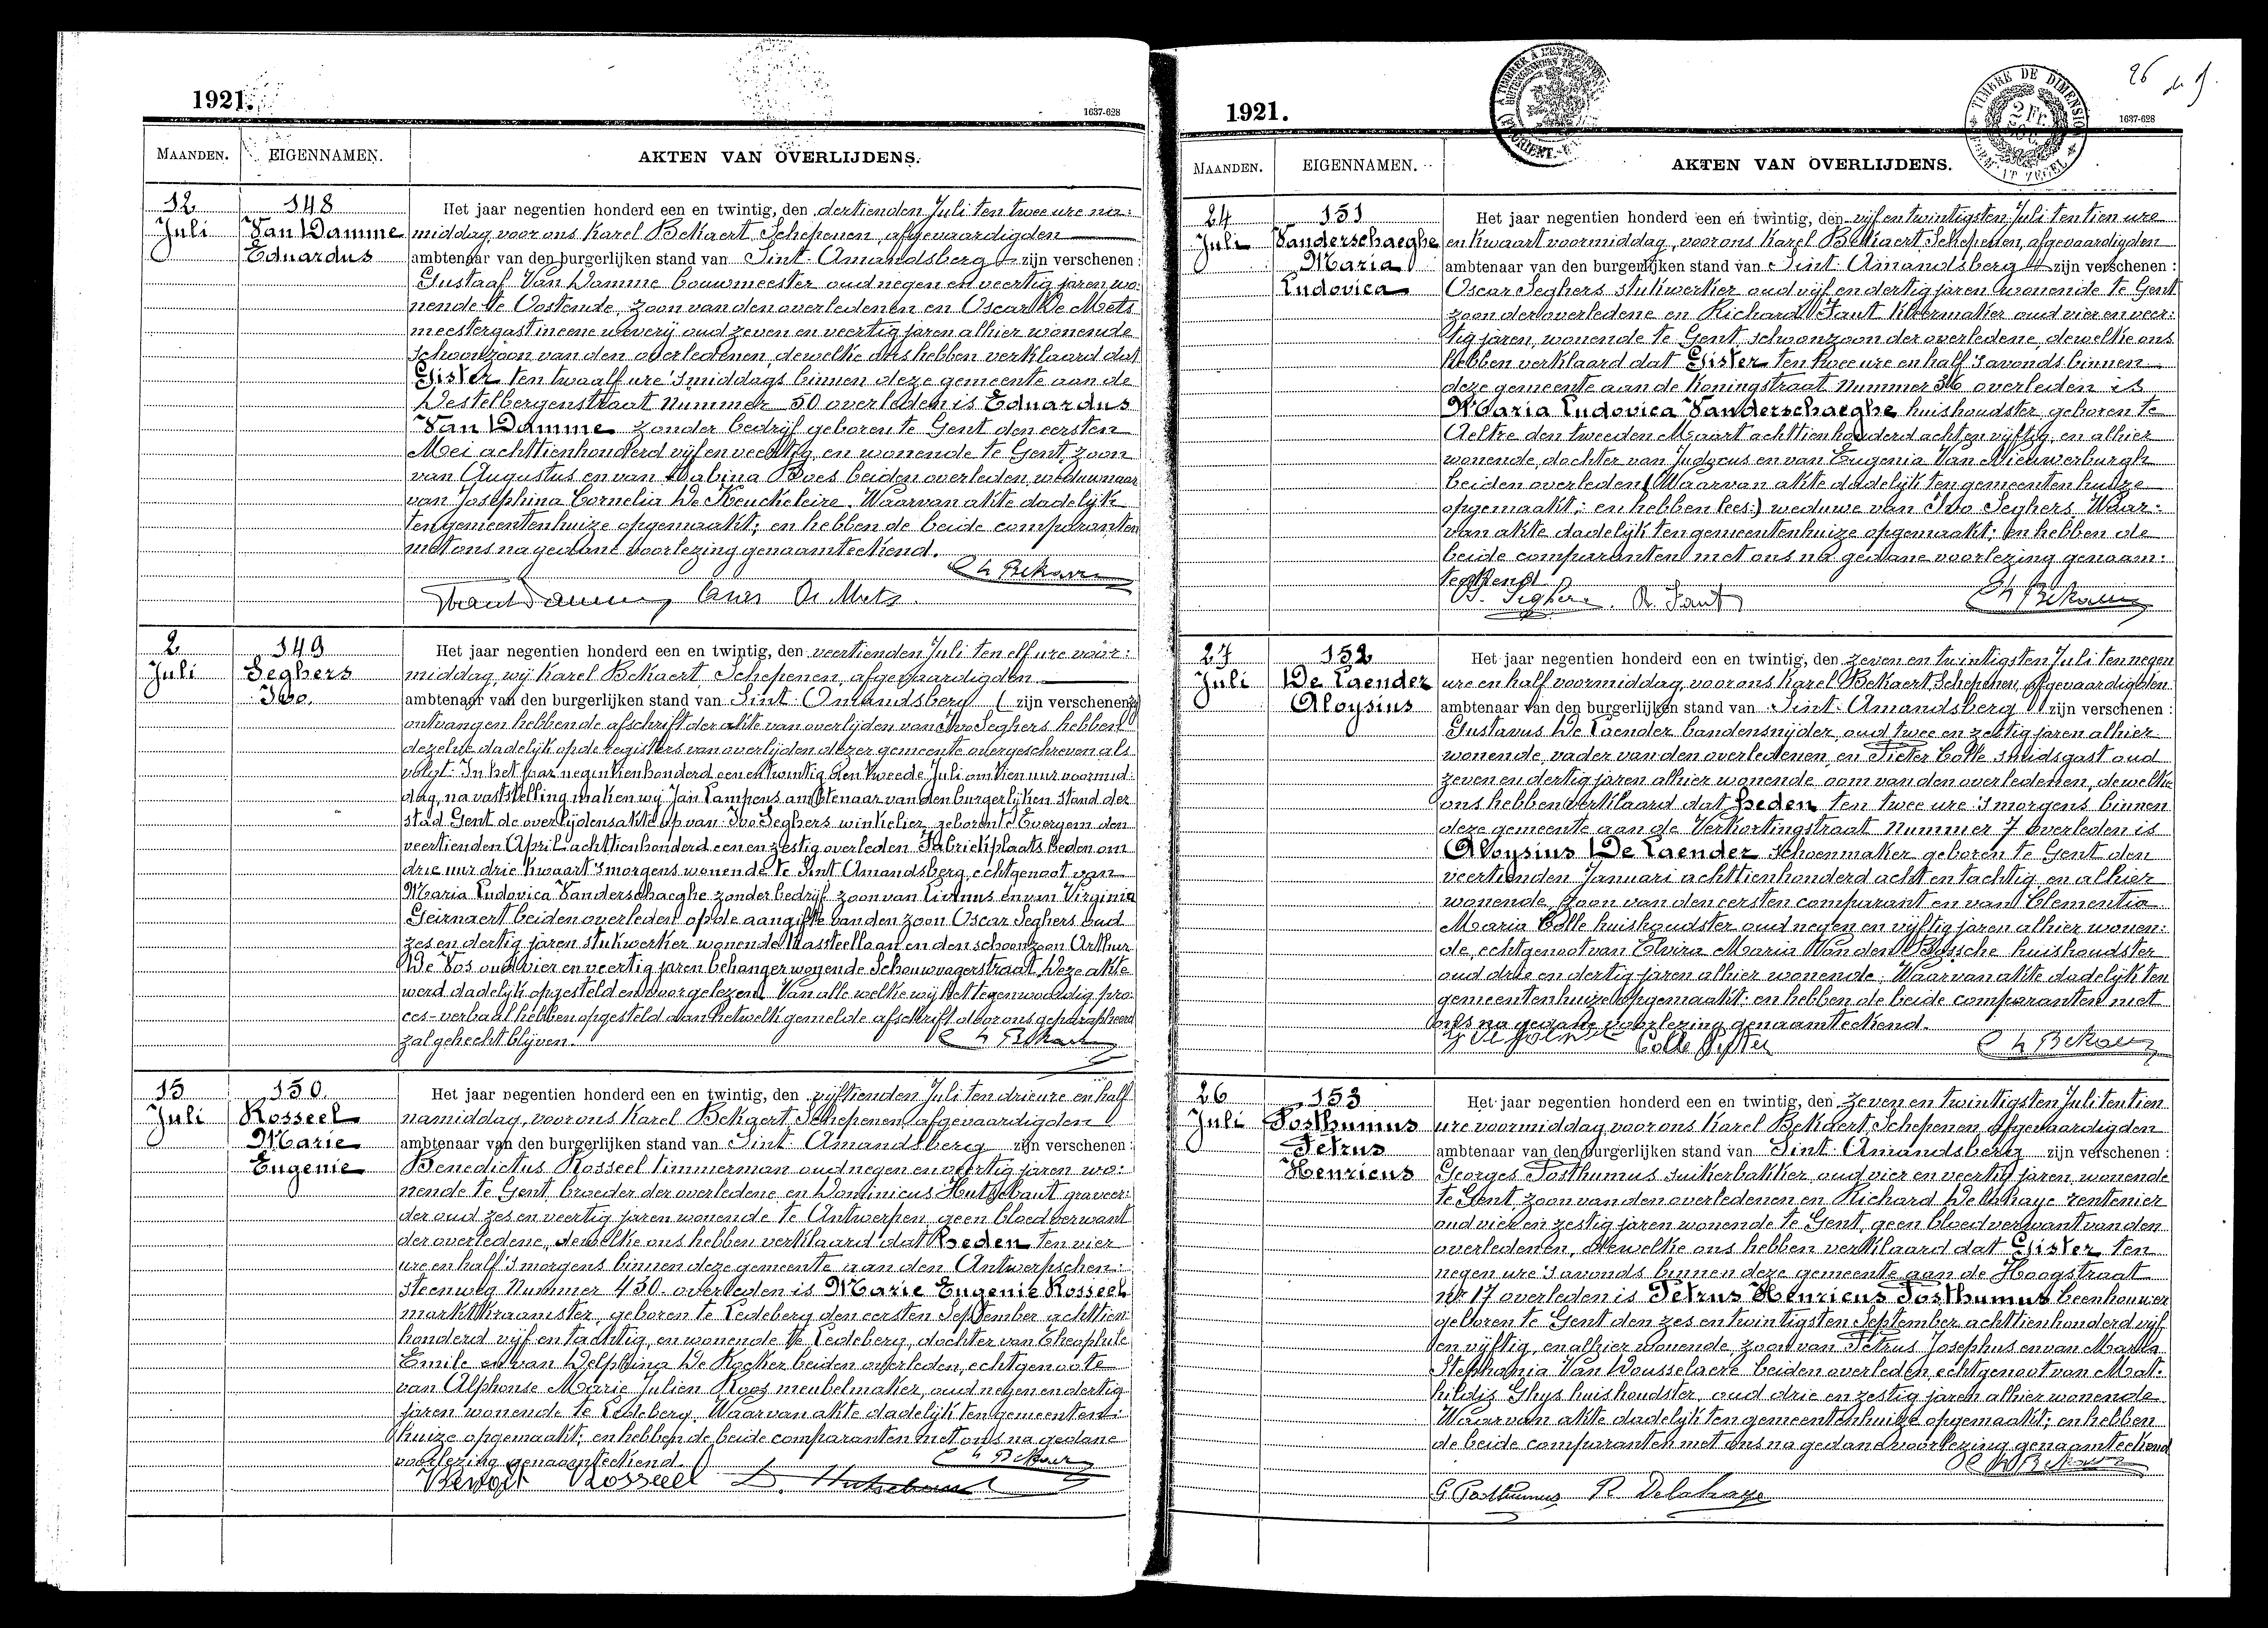 1921.
1637-628
MAANDEN.
EIGENNAMEN.
AKTEN VAN OVERLIJDENS.
12
Juli
148
Van Damme
Eduardus
Het jaar negentien honderd een en twintig, den dertienden Juli ten twee ure na:
middag, voor ons Karel Bekaert Schepenen, afgevaardigden
ambtenaar van den burgerlijken stand van Sint Amandsberg zijn verschenen:
Gustaaf Van Damme bouwmeester oud negen en veertig jaren wo:
nende te Oostende, zoon van den overledenen en Oscar De Mets
meestergast in eene weverij oud zeven en veertig jaren alhier wonende
schoonzoon van den overledenen, dewelke ons hebben verklaard dat
Gister ten twaalf ure 's middags binnen deze gemeente aan de
Destelbergenstraat nummer 50 overleden is Eduardus
Van Damme zonder bedrijf geboren te Gent den eersten
Mei achttienhonderd vijf en veertig, en wonende te Gent, zoon
van Augustus en van Sabina Boes beiden overleden, weduwnaar
van Josephina Cornelia De Keuckeleire. Waarvan akte dadelijk
ten gemeentenhuize opgemaakt; en hebben de beide comparanten
met ons na gedane voorlezing genaamteekend.
Ch Bekaert
Oscar De Mets.
2
Juli
149
Seghers
Ivo.
Het jaar negentien honderd een en twintig, den veertienden Juli ten elf ure voor:
middag, wij Karel Bekaert Schepenen, afgevaardigden
ambtenaar van den burgerlijken stand van Sint Amandsberg ( zijn verschenen:)
ontvangen hebbende afschrift der akte van overlijden van Ivo Seghers hebben
dezelve dadelijk op de registers van overlijden dezer gemeente overgeschreven als
volgt: In het jaar negentienhonderd een en twintig den tweede Juli om tien uur voormid:
dag, na vaststelling maken wij Jan Lampens ambtenaar van den burgerlijken stand der
stad Gent de overlijdensakte op van: Ivo Seghers winkelier, geboren te Evergem den
veertienden April achttienhonderd een en zestig overleden Fabriekplaats heden om
drie uur drie kwaart 's morgens wonende te Sint Amandsberg, echtgenoot van
Maria Ludovica Vanderschaeghe zonder bedrijf zoon van Livinus en van Virginia
Geirnaert beiden overleden op de aangifte van den zoon Oscar Seghers oud
zes en dertig jaren stukwerker wonende Kasteellaan en den schoonzoon Arthur
De Vos oud vier en veertig jaren behanger wonende Schouwvagerstraat. Deze akte
werd dadelijk opgesteld en voorgelezen. Van alle welke wij het tegenwoordig pro:
ces-verbaal hebben opgesteld aan hetwelk gemelde afschrift door ons geparapheerd
zal gehecht blijven.
Ch Bekaert
15
Juli
150.
Rosseel
Marie
Eugenie
Het jaar negentien honderd een en twintig, den vijftienden Juli ten drie ure en half
namiddag, voor ons Karel Bekaert Schepenen, afgevaardigden
ambtenaar van den burgerlijken stand van Sint Amandsberg zijn verschenen:
Benedictus Rosseel timmerman oud negen en veertig jaren wo:
nende te Gent, broeder der overledene en Dominicus Hutsebaut graveer:
der oud zes en veertig jaren wonende te Antwerpen, geen bloedverwant
der overledene, dewelke ons hebben verklaard dat heden ten vier
ure en half 's morgens binnen deze gemeente aan den Antwerpschen:
steenweg Nummer 430. overleden is Marie Eugenie Rosseel
marktkraamster, geboren te Ledeberg den eersten September achttien:
honderd vijf en tachtig, en wonende te Ledeberg, dochter van Theophile
Emile en van Delphina De Kocker beiden overleden, echtgenoote
van Alphonse Marie Julien Roos meubelmaker, oud negen en dertig
jaren wonende te Ledeberg. Waarvan akte dadelijk ten gemeenten:
huize opgemaakt; en hebben de beide comparanten met ons na gedane
voorlezing genaamteekend.
Ch Bekaert
Benoît Rosseel D. Hutsebaut
1921.
26
TIMBRE DE DIMENSION
2 Fr.
1637-628
MAANDEN.
EIGENNAMEN.
AKTEN VAN OVERLIJDENS.
24
Juli
151
Vanderschaeghe
Maria
Ludovica
Het jaar negentien honderd een en twintig, den vijf en twintigsten Juli ten tien ure
en kwaart voormiddag, voor ons Karel Bekaert Schepenen, afgevaardigden
ambtenaar van den burgerlijken stand van Sint Amandsberg zijn verschenen:
Oscar Seghers stukwerker oud vijf en dertig jaren wonende te Gent
zoon der overledene en Richard Fant kleermaker oud vier en veer:
tig jaren, wonende te Gent, schoonzoon der overledene, dewelke ons
hebben verklaard dat Gister ten twee ure en half 's avonds binnen
deze gemeente aan de Koningstraat nummer 36 overleden is
Maria Ludovica Vanderschaeghe huishoudster, geboren te
Aeltre den tweeden Maart achttienhonderd acht en vijftig, en alhier
wonende, dochter van Judocus en van Eugenia Van Nieuwerburgh
beiden overleden (Waarvan akte dadelijk ten gemeentenhuize
opgemaakt; en hebben lees:) weduwe van Ivo Seghers. Waar:
van akte dadelijk ten gemeentenhuize opgemaakt; en hebben de
beide comparanten met ons na gedane voorlezing genaam:
teekend
O. Seghers. R. Fant
Ch Bekaert
27
Juli
152
De Laender
Aloysius
Het jaar negentien honderd een en twintig, den zeven en twintigsten Juli ten negen
ure en half voormiddag, voor ons Karel Bekaert, Schepenen, afgevaardigden
ambtenaar van den burgerlijken stand van Sint Amandsberg zijn verschenen:
Gustavus De Laender bandensnijder, oud twee en zestig jaren alhier
wonende, vader van den overledenen, en Pieter Colle smidsgast oud
zeven en dertig jaren alhier wonende oom van den overledenen, dewelke
ons hebben verklaard dat heden ten twee ure 's morgens binnen
deze gemeente aan de Verkortingstraat nummer 7 overleden is
Aloysius De Laender schoenmaker geboren te Gent den
veertienden Januari achttienhonderd acht en tachtig, en alhier
wonende, zoon van den eersten comparant en van Clementia
Maria Colle huishoudster oud negen en vijftig jaren alhier wonen:
de, echtgenoot van Elvira Maria Van den Bossche huishoudster
oud drie en dertig jaren alhier wonende. Waarvan akte dadelijk ten
gemeentenhuize opgemaakt: en hebben de beide comparanten met
ons na gedane voorlezing genaamteekend.
Colle Pieter
Ch Bekaert
26
Juli
153
Posthumus
Petrus
Henricus
Het jaar negentien honderd een en twintig, den zeven en twintigsten Juli ten tien
ure voormiddag, voor ons Karel Bekaert, Schepenen, afgevaardigden
ambtenaar van den burgerlijken stand van Sint Amandsberg zijn verschenen:
Georges Posthumus suikerbakker, oud vier en veertig jaren, wonende
te Gent, zoon van den overledenen en Richard Delahaye rentenier
oud vier en zestig jaren wonende te Gent, geen bloedverwant van den
overledenen, dewelke ons hebben verklaard dat Gister ten
negen ure 's avonds binnen deze gemeente aan de Hoogstraat
nr 17 overleden is Petrus Henricus Posthumus beenhouwer
geboren te Gent den zes en twintigsten September achttienhonderd vijf
en vijftig, en alhier wonende, zoon van Petrus Josephus en van Maria
Stephania Van Wousselaere beiden overleden, echtgenoot van Mat:
hildis Ghys huishoudster, oud drie en zestig jaren alhier wonende
Waarvan akte dadelijk ten gemeentenhuize opgemaakt; en hebben
de beide comparanten met ons na gedane voorlezing genaamteekend
Ch Bekaert
G Posthumus R. Delahaye